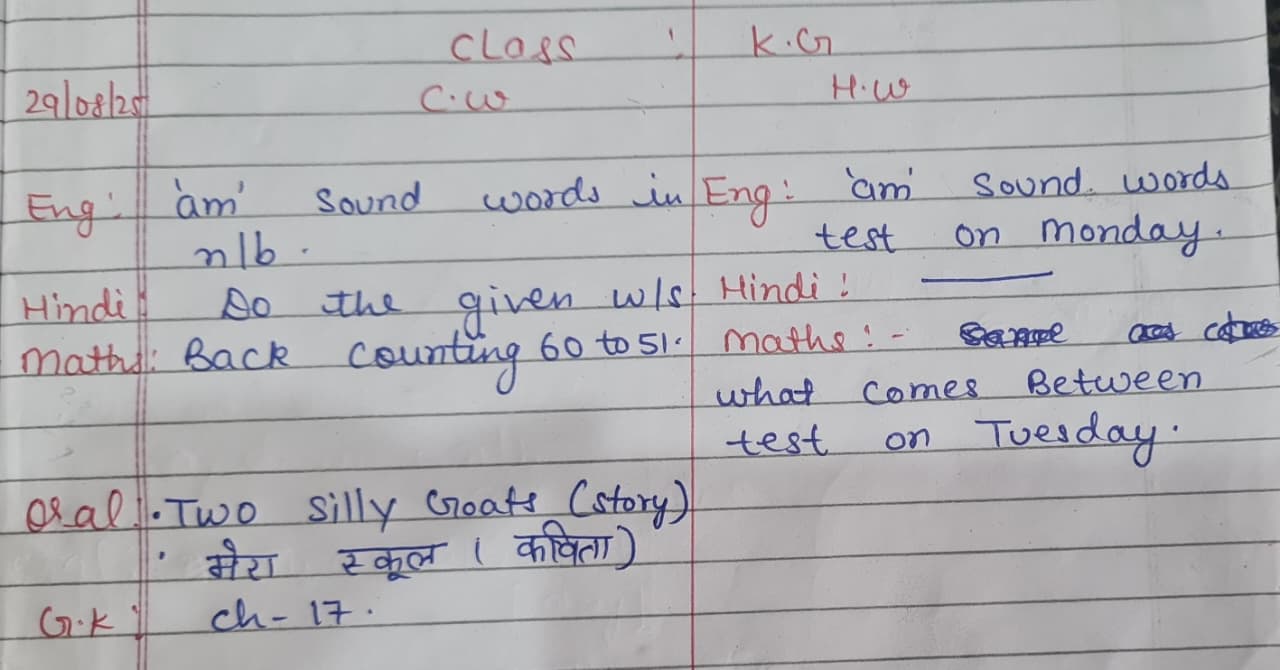 Class : K.G
29/08/25 C.W H.W
Eng: 'am' sound words in Eng: 'am' sound words
n/b. test on monday.
Hindi: Do the given w/s. Hindi:
Maths: Back counting 60 to 51. Maths:-
what comes Between
test on Tuesday.
Oral: • Two silly Goats (story)
• मेरा स्कूल ( कविता )
G.K: ch-17.